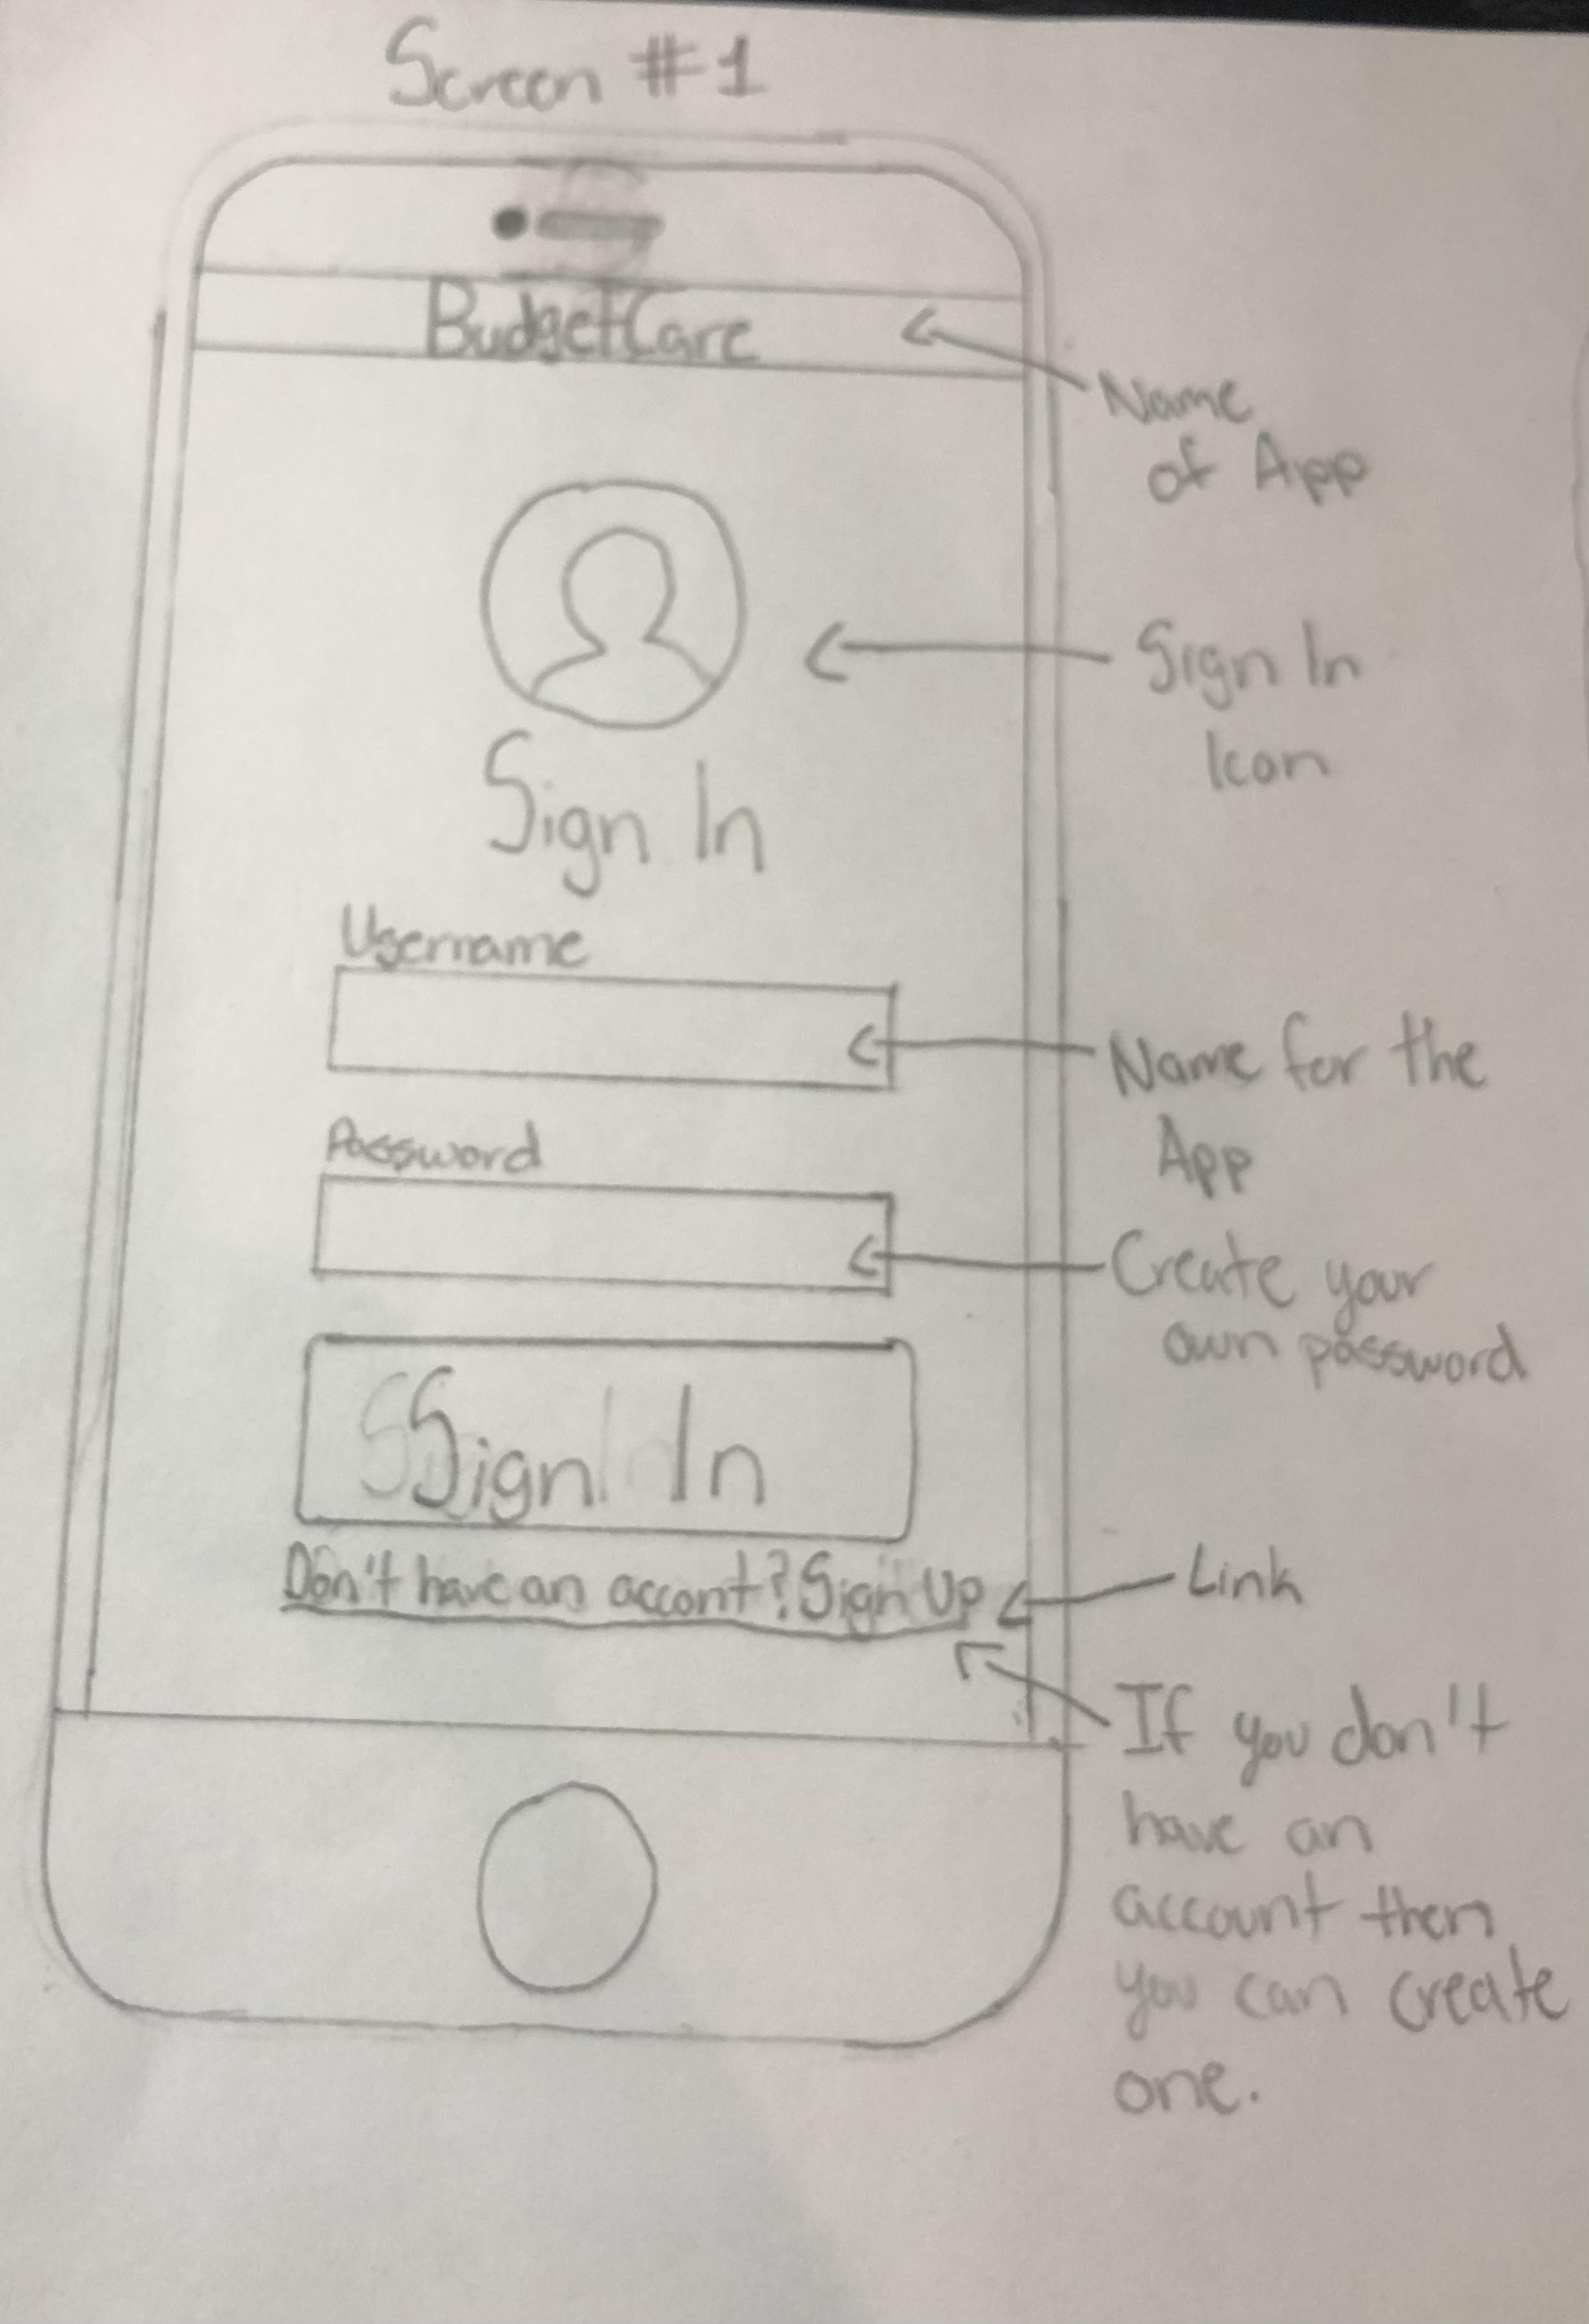 Screen #1
BudgetCare
Name
of App
Sign In
Icon
Sign In
Username
Name for the
App
Password
Create your
own password
Sign In
Don't have an accont? Sign Up
Link
If you don't
have an
account then
you can create
one.